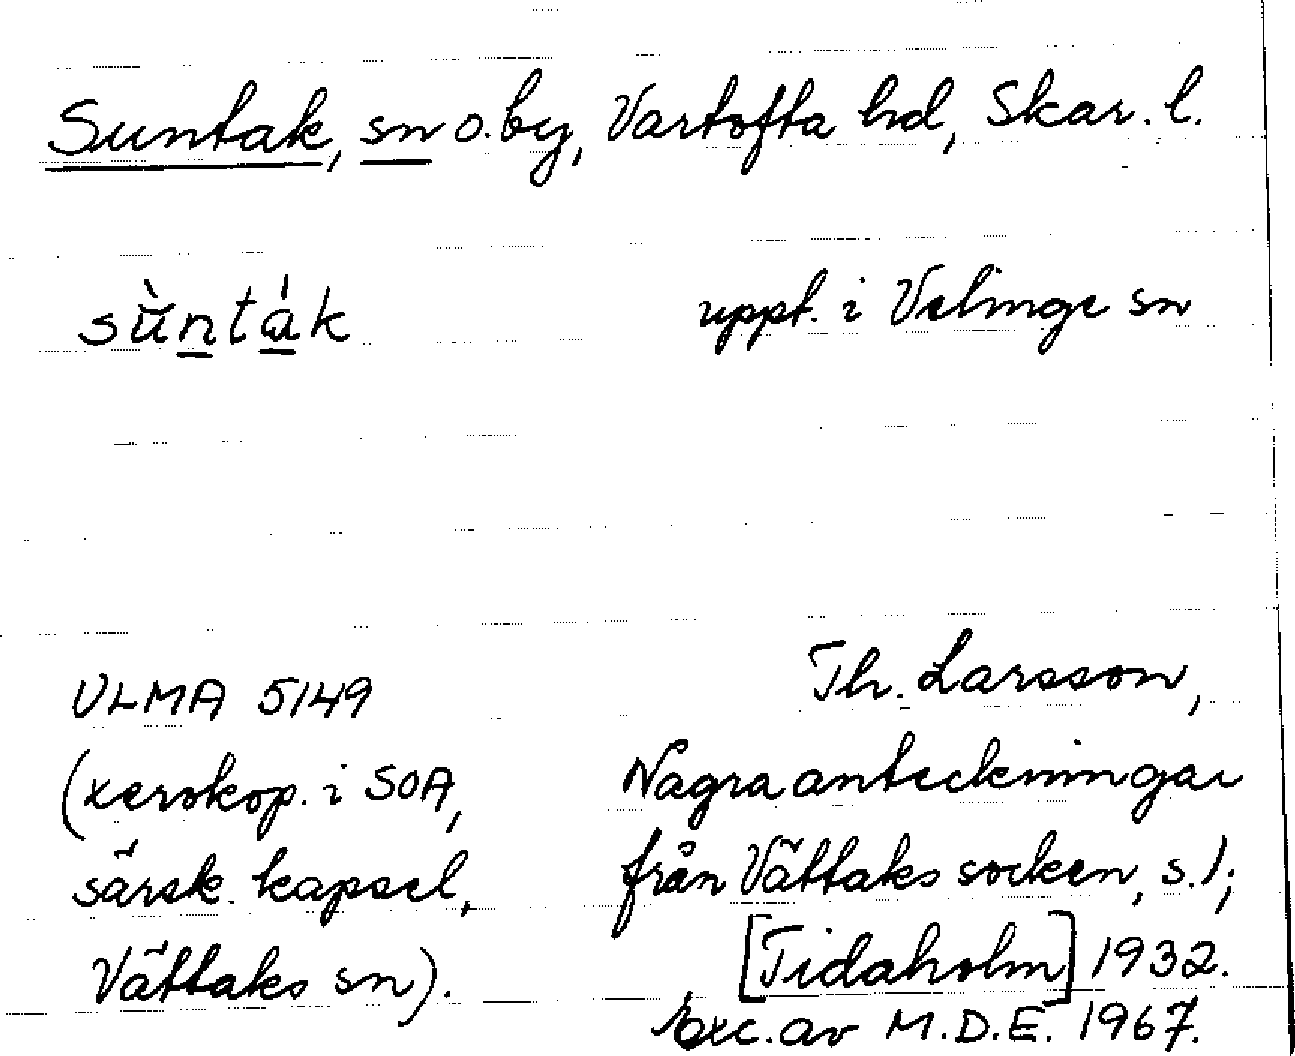 Suntak, sn o. by, Vartofta hd, Skar. l.
sùnták uppt. i Velinge sn
ULMA 5149
(xerokop. i SOA,
särsk. kapsel,
Vättaks sn).
Th. Larsson,
Några anteckningar
från Vättaks socken, s. 1;
[Tidaholm] 1932.
Exc. av M.D.E. 1967.